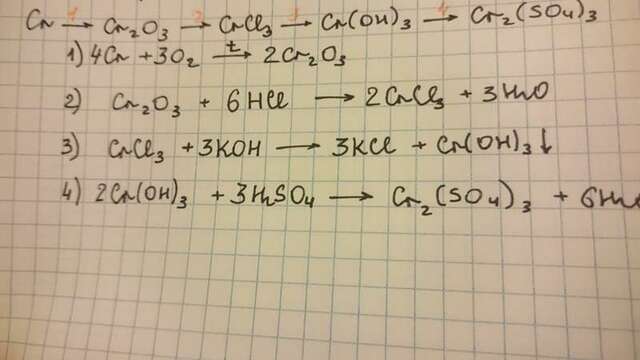 Cr 1→ Cr₂O₃ 2→ CrCl₃ 3→ Cr(OH)₃ 4→ Cr₂(SO₄)₃
1) 4Cr + 3O₂ t→ 2Cr₂O₃
2) Cr₂O₃ + 6HCl → 2CrCl₃ + 3H₂O
3) CrCl₃ + 3KOH → 3KCl + Cr(OH)₃↓
4) 2Cr(OH)₃ + 3H₂SO₄ → Cr₂(SO₄)₃ + 6H₂